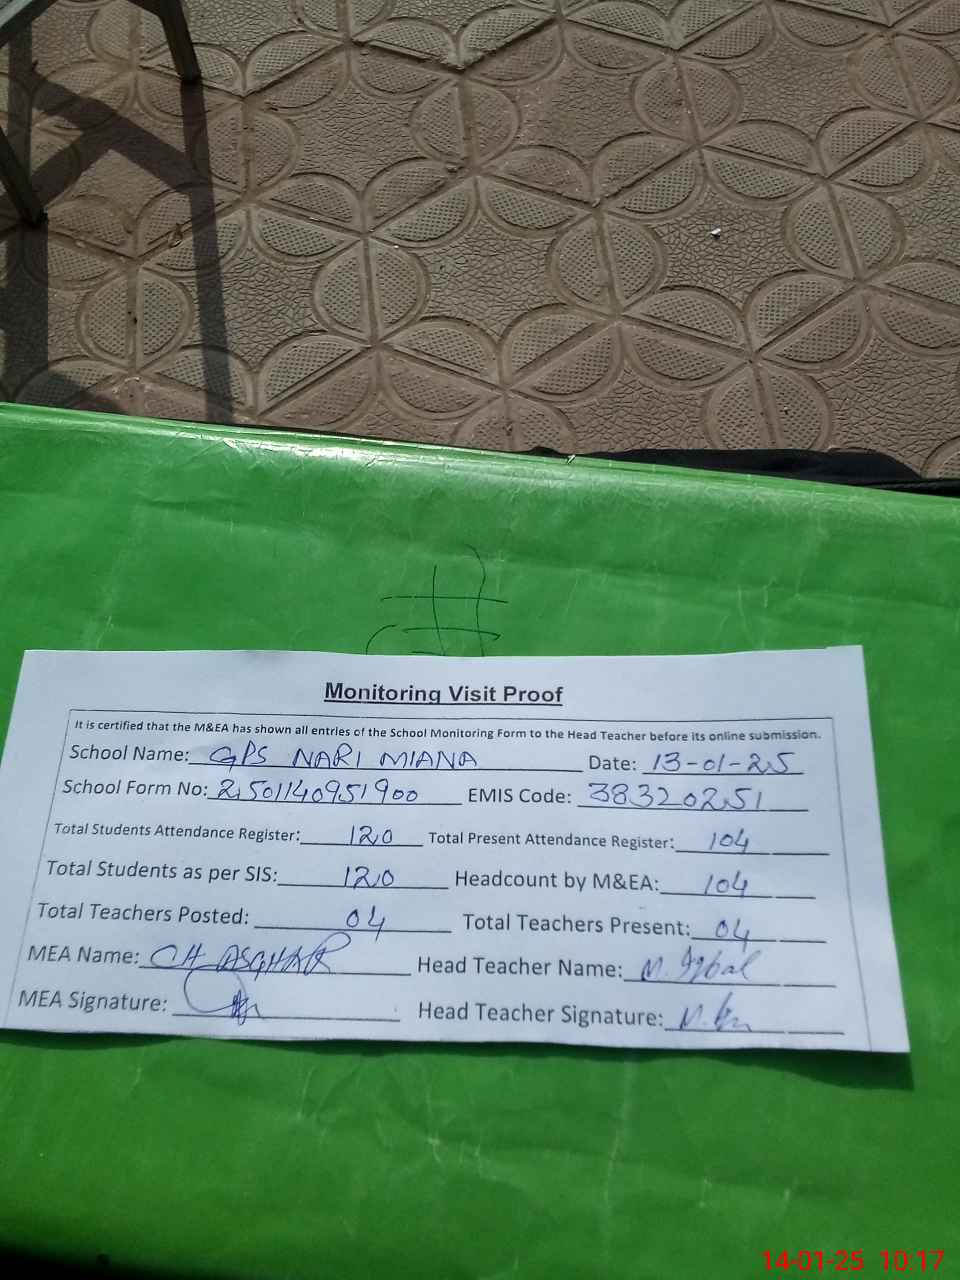 Monitoring Visit Proof
It is certified that the M&EA has shown all entries of the School Monitoring Form to the Head Teacher before its online submission.
School Name: GPS NARI MIANA Date: 13-01-25
School Form No: 2501140951900 EMIS Code: 38320251
Total Students Attendance Register: 120 Total Present Attendance Register: 104
Total Students as per SIS: 120 Headcount by M&EA: 104
Total Teachers Posted: 04 Total Teachers Present: 04
MEA Name: CH ASGHAR Head Teacher Name: M. Iqbal
MEA Signature: Head Teacher Signature:
14-01-25 10:17